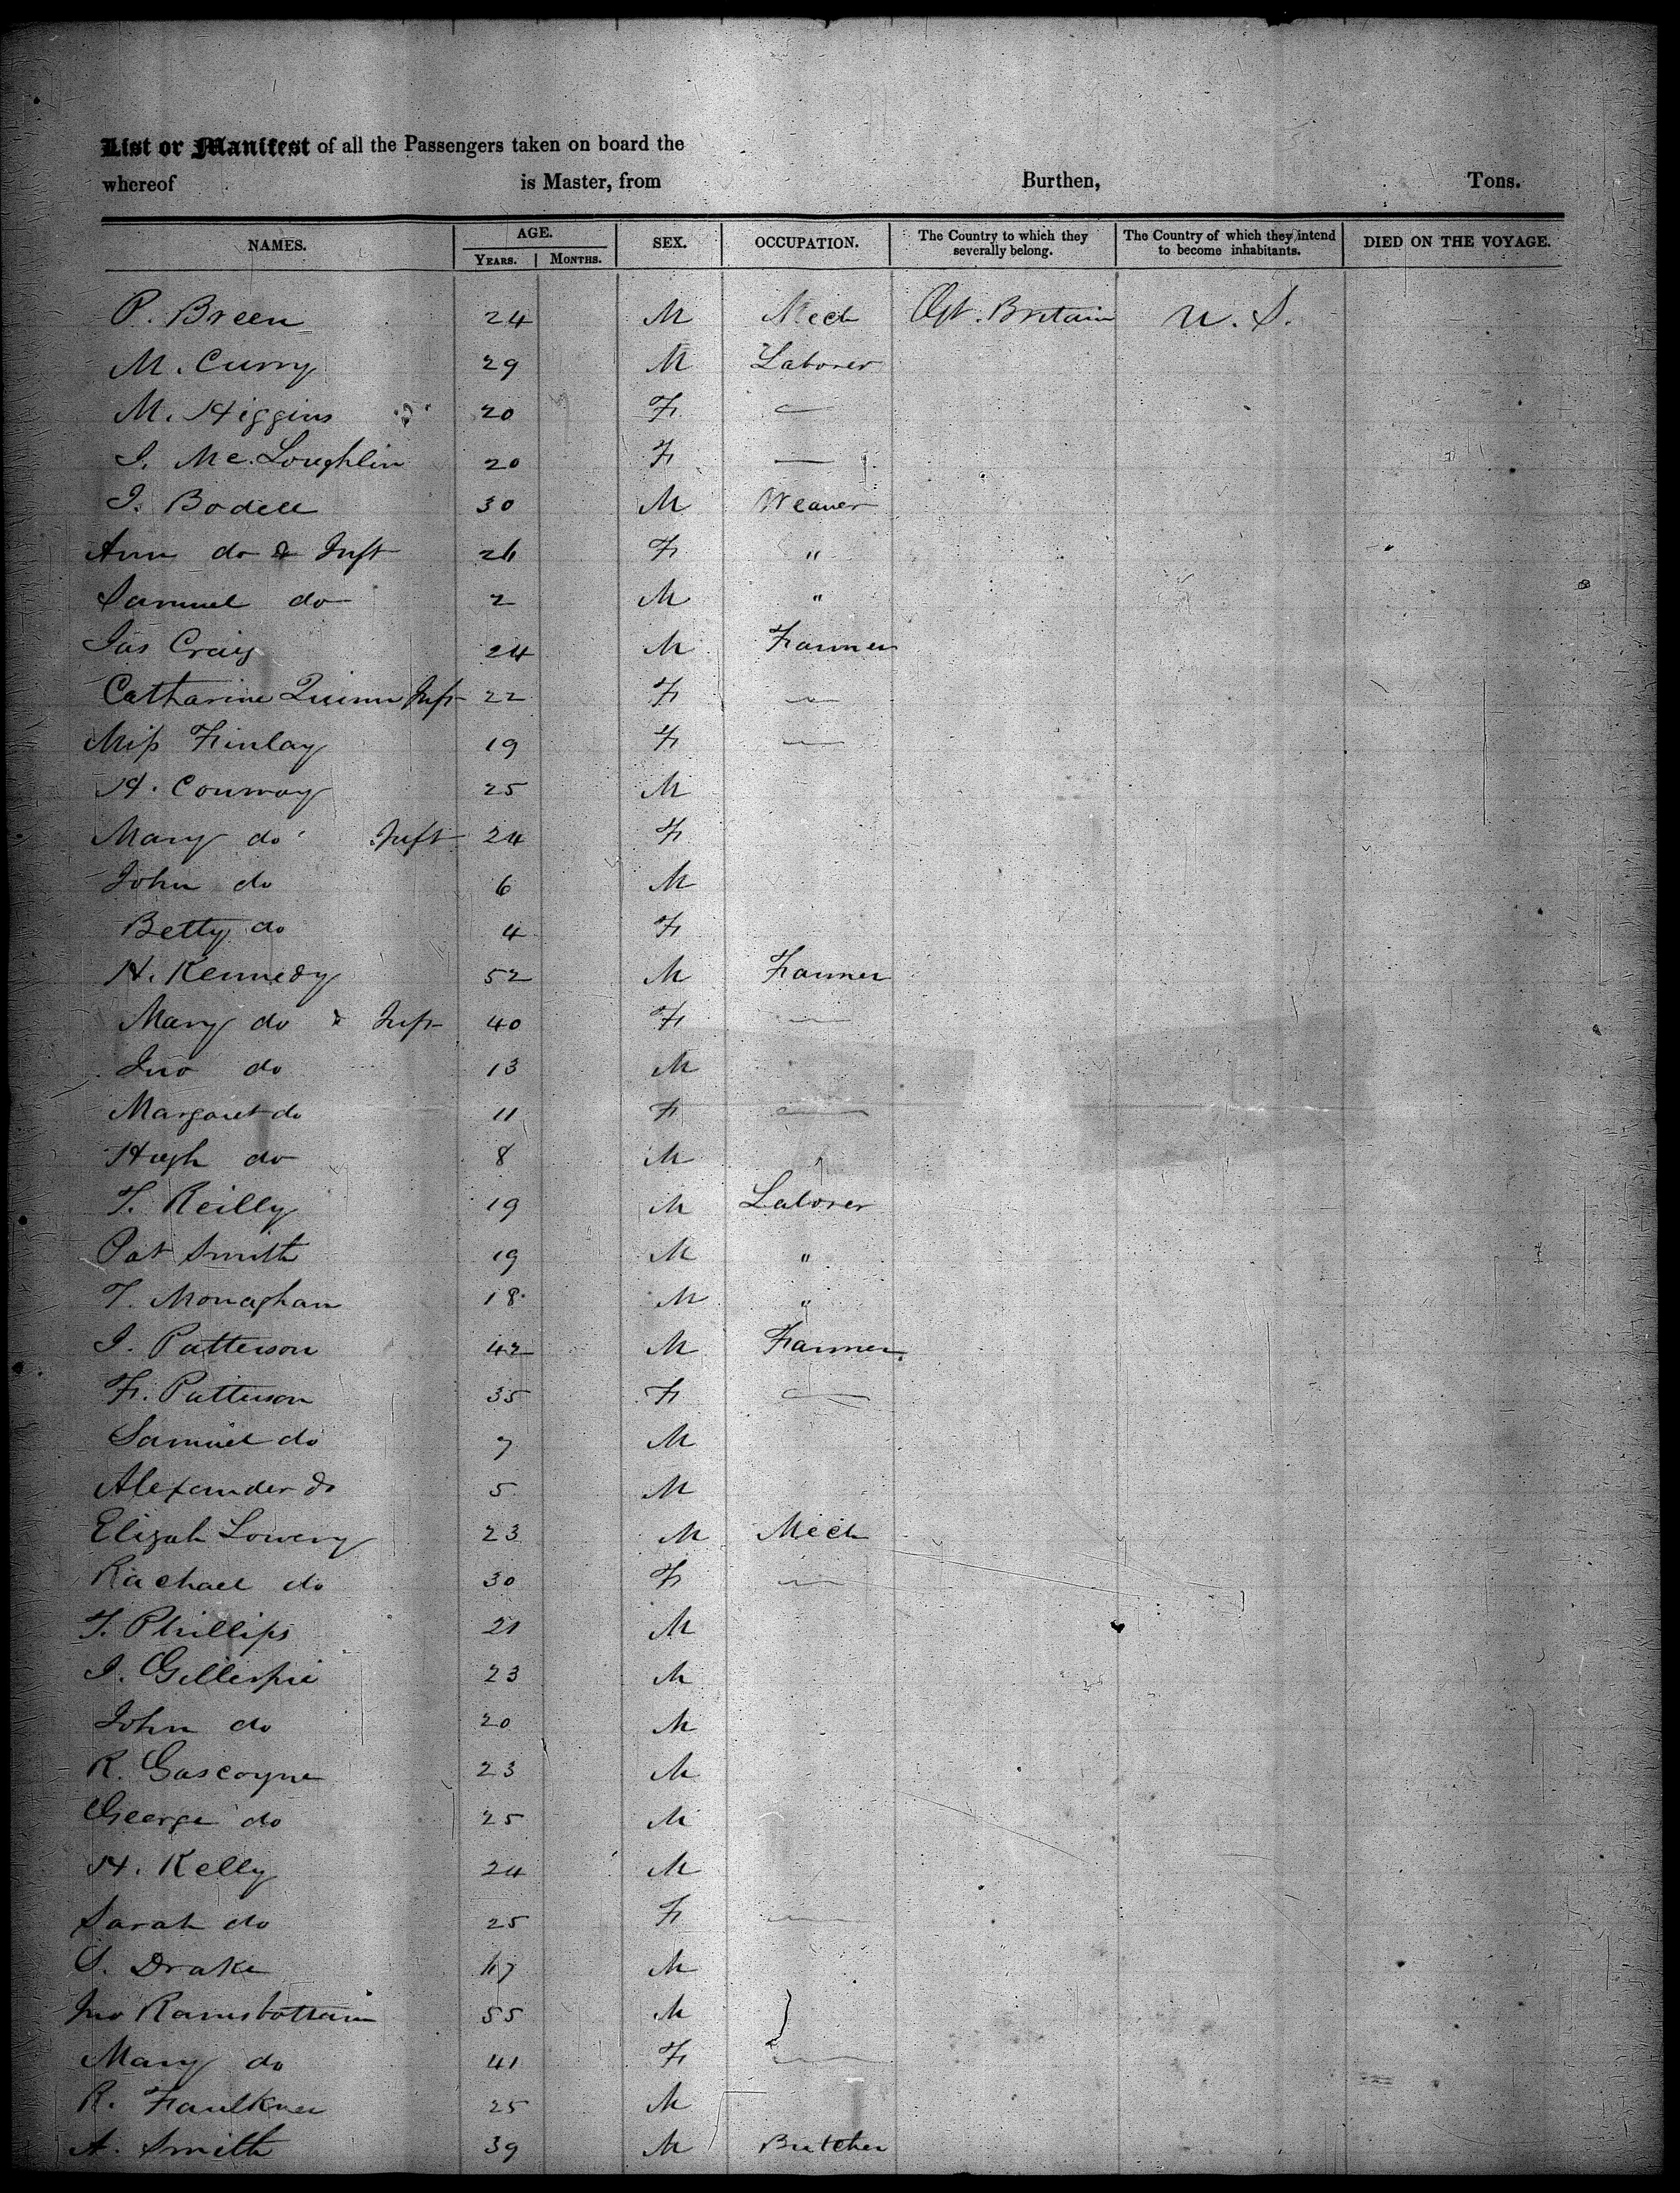 List or Manifest of all the Passengers taken on board the
whereof is Master, from Burthen, Tons.
NAMES. AGE. YEARS. MONTHS. SEX. OCCUPATION. The Country to which they severally belong. The Country of which they intend to become inhabitants. DIED ON THE VOYAGE.
P. Breen 24 M Mech Gt. Britain U. S.
M. Curry 29 M Laborer
M. Higgins 20 F —
J. Mc. Loughlin 20 F —
J. Bodell 30 M Weaver
Ann do & Inft 26 F "
Samuel do 2 M "
Jas Craig 24 M Farmer
Catharine Quinn Inft 22 F —
Miss Finlay 19 F —
H. Conway 25 M
Mary do Inft 24 F
John do 6 M
Betty do 4 F
H. Kennedy 52 M Farmer
Mary do & Inft 40 F —
Jno do 13 M
Margaret do 11 F —
Hugh do 8 M
T. Reilly 19 M Laborer
Pat Smith 19 M "
T. Monaghan 18 M "
J. Patterson 42 M Farmer
F. Patterson 35 F —
Samuel do 7 M
Alexander do 5 M
Elizah Lowery 23 M Mech
Rachael do 30 F —
T. Phillips 21 M
J. Gillespie 23 M
John do 20 M
R. Gascoyne 23 M
George do 25 M
H. Kelly 24 M
Sarah do 25 F —
S. Drake M
Jno Ramsbottam 55 M
Mary do 41 F —
R. Faulkner 25 M
A. Smith 39 M Butcher